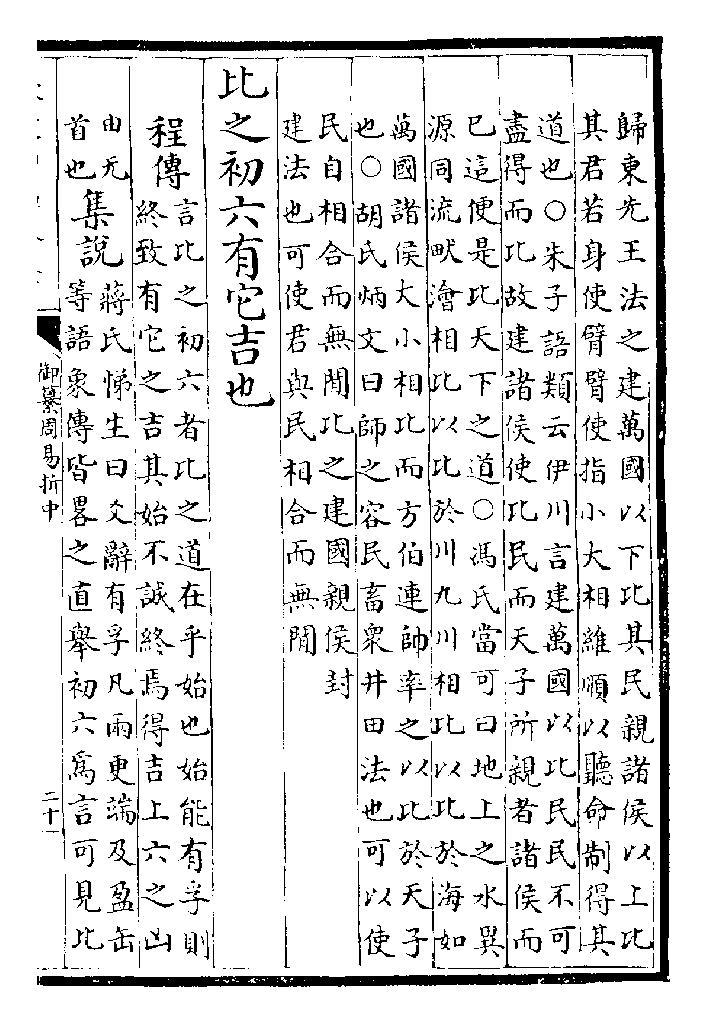 歸東先王法之建萬國以下比其民親諸侯以上比
其君若身使臂臂使指小大相維順以聽命制得其
道也○朱子語類云伊川言建萬國以比民民不可
盡得而比故建諸侯使比民而天子所親者諸侯而
已這便是比天下之道○馮氏當可曰地上之水異
源同流畎澮相比以比於川九川相比以比於海如
萬國諸侯大小相比而方伯連帥率之以比於天子
也○胡氏炳文曰師之容民畜衆井田法也可以使
民自相合而無閒比之建國親侯封
建法也可使君與民相合而無閒
比之初六有它吉也
程傳
言比之初六者比之道在乎始也始能有孚則
終致有它之吉其始不誠終焉得吉上六之凶
由无
首也
集說
蔣氏悌生曰爻辭有孚凡兩更端及盈缶
等語象傳皆畧之直舉初六爲言可見比
御纂周易折中
二十一